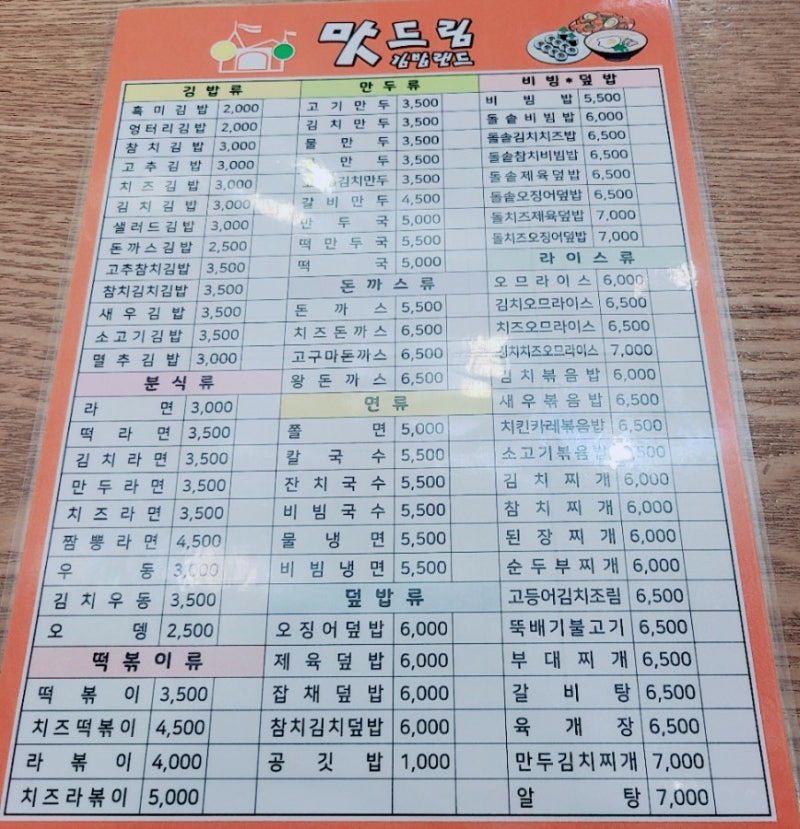 맛드림
김밥류
흑미김밥 2,000
엉터리김밥 2,000
참치김밥 3,000
고추김밥 3,000
치즈김밥 3,000
김치김밥 3,000
샐러드김밥 3,000
돈까스김밥 2,500
고추참치김밥 3,500
참치김치김밥 3,500
새우김밥 3,500
소고기김밥 3,500
멸추김밥 3,000
분식류
라면 3,000
떡라면 3,500
김치라면 3,500
만두라면 3,500
치즈라면 3,500
짬뽕라면 4,500
우동 3,000
김치우동 3,500
오뎅 2,500
떡볶이류
떡볶이 3,500
치즈떡볶이 4,500
라볶이 4,000
치즈라볶이 5,000
만두류
고기만두 3,500
김치만두 3,500
물만두 3,500
만두 3,500
김치만두 3,500
갈비만두 4,500
만두국 5,000
떡만두국 5,500
떡국 5,000
돈까스류
돈까스 5,500
치즈돈까스 6,500
고구마돈까스 6,500
왕돈까스 6,500
면류
쫄면 5,000
칼국수 5,500
잔치국수 5,500
비빔국수 5,500
물냉면 5,500
비빔냉면 5,500
덮밥류
오징어덮밥 6,000
제육덮밥 6,000
잡채덮밥 6,000
참치김치덮밥 6,000
공깃밥 1,000
비빔*덮밥
비빔밥 5,500
돌솥비빔밥 6,000
돌솥김치치즈밥 6,500
돌솥참치비빔밥 6,500
돌솥제육덮밥 6,500
돌솥오징어덮밥 6,500
돌치즈제육덮밥 7,000
돌치즈오징어덮밥 7,000
라이스류
오므라이스 6,000
김치오므라이스 6,500
치즈오므라이스 6,500
김치치즈오므라이스 7,000
김치볶음밥 6,000
새우볶음밥 6,500
치킨카레볶음밥 6,500
소고기볶음밥
김치찌개 6,000
참치찌개 6,000
된장찌개 6,000
순두부찌개 6,000
고등어김치조림 6,500
뚝배기불고기 6,500
부대찌개 6,500
갈비탕 6,500
육개장 6,500
만두김치찌개 7,000
알탕 7,000